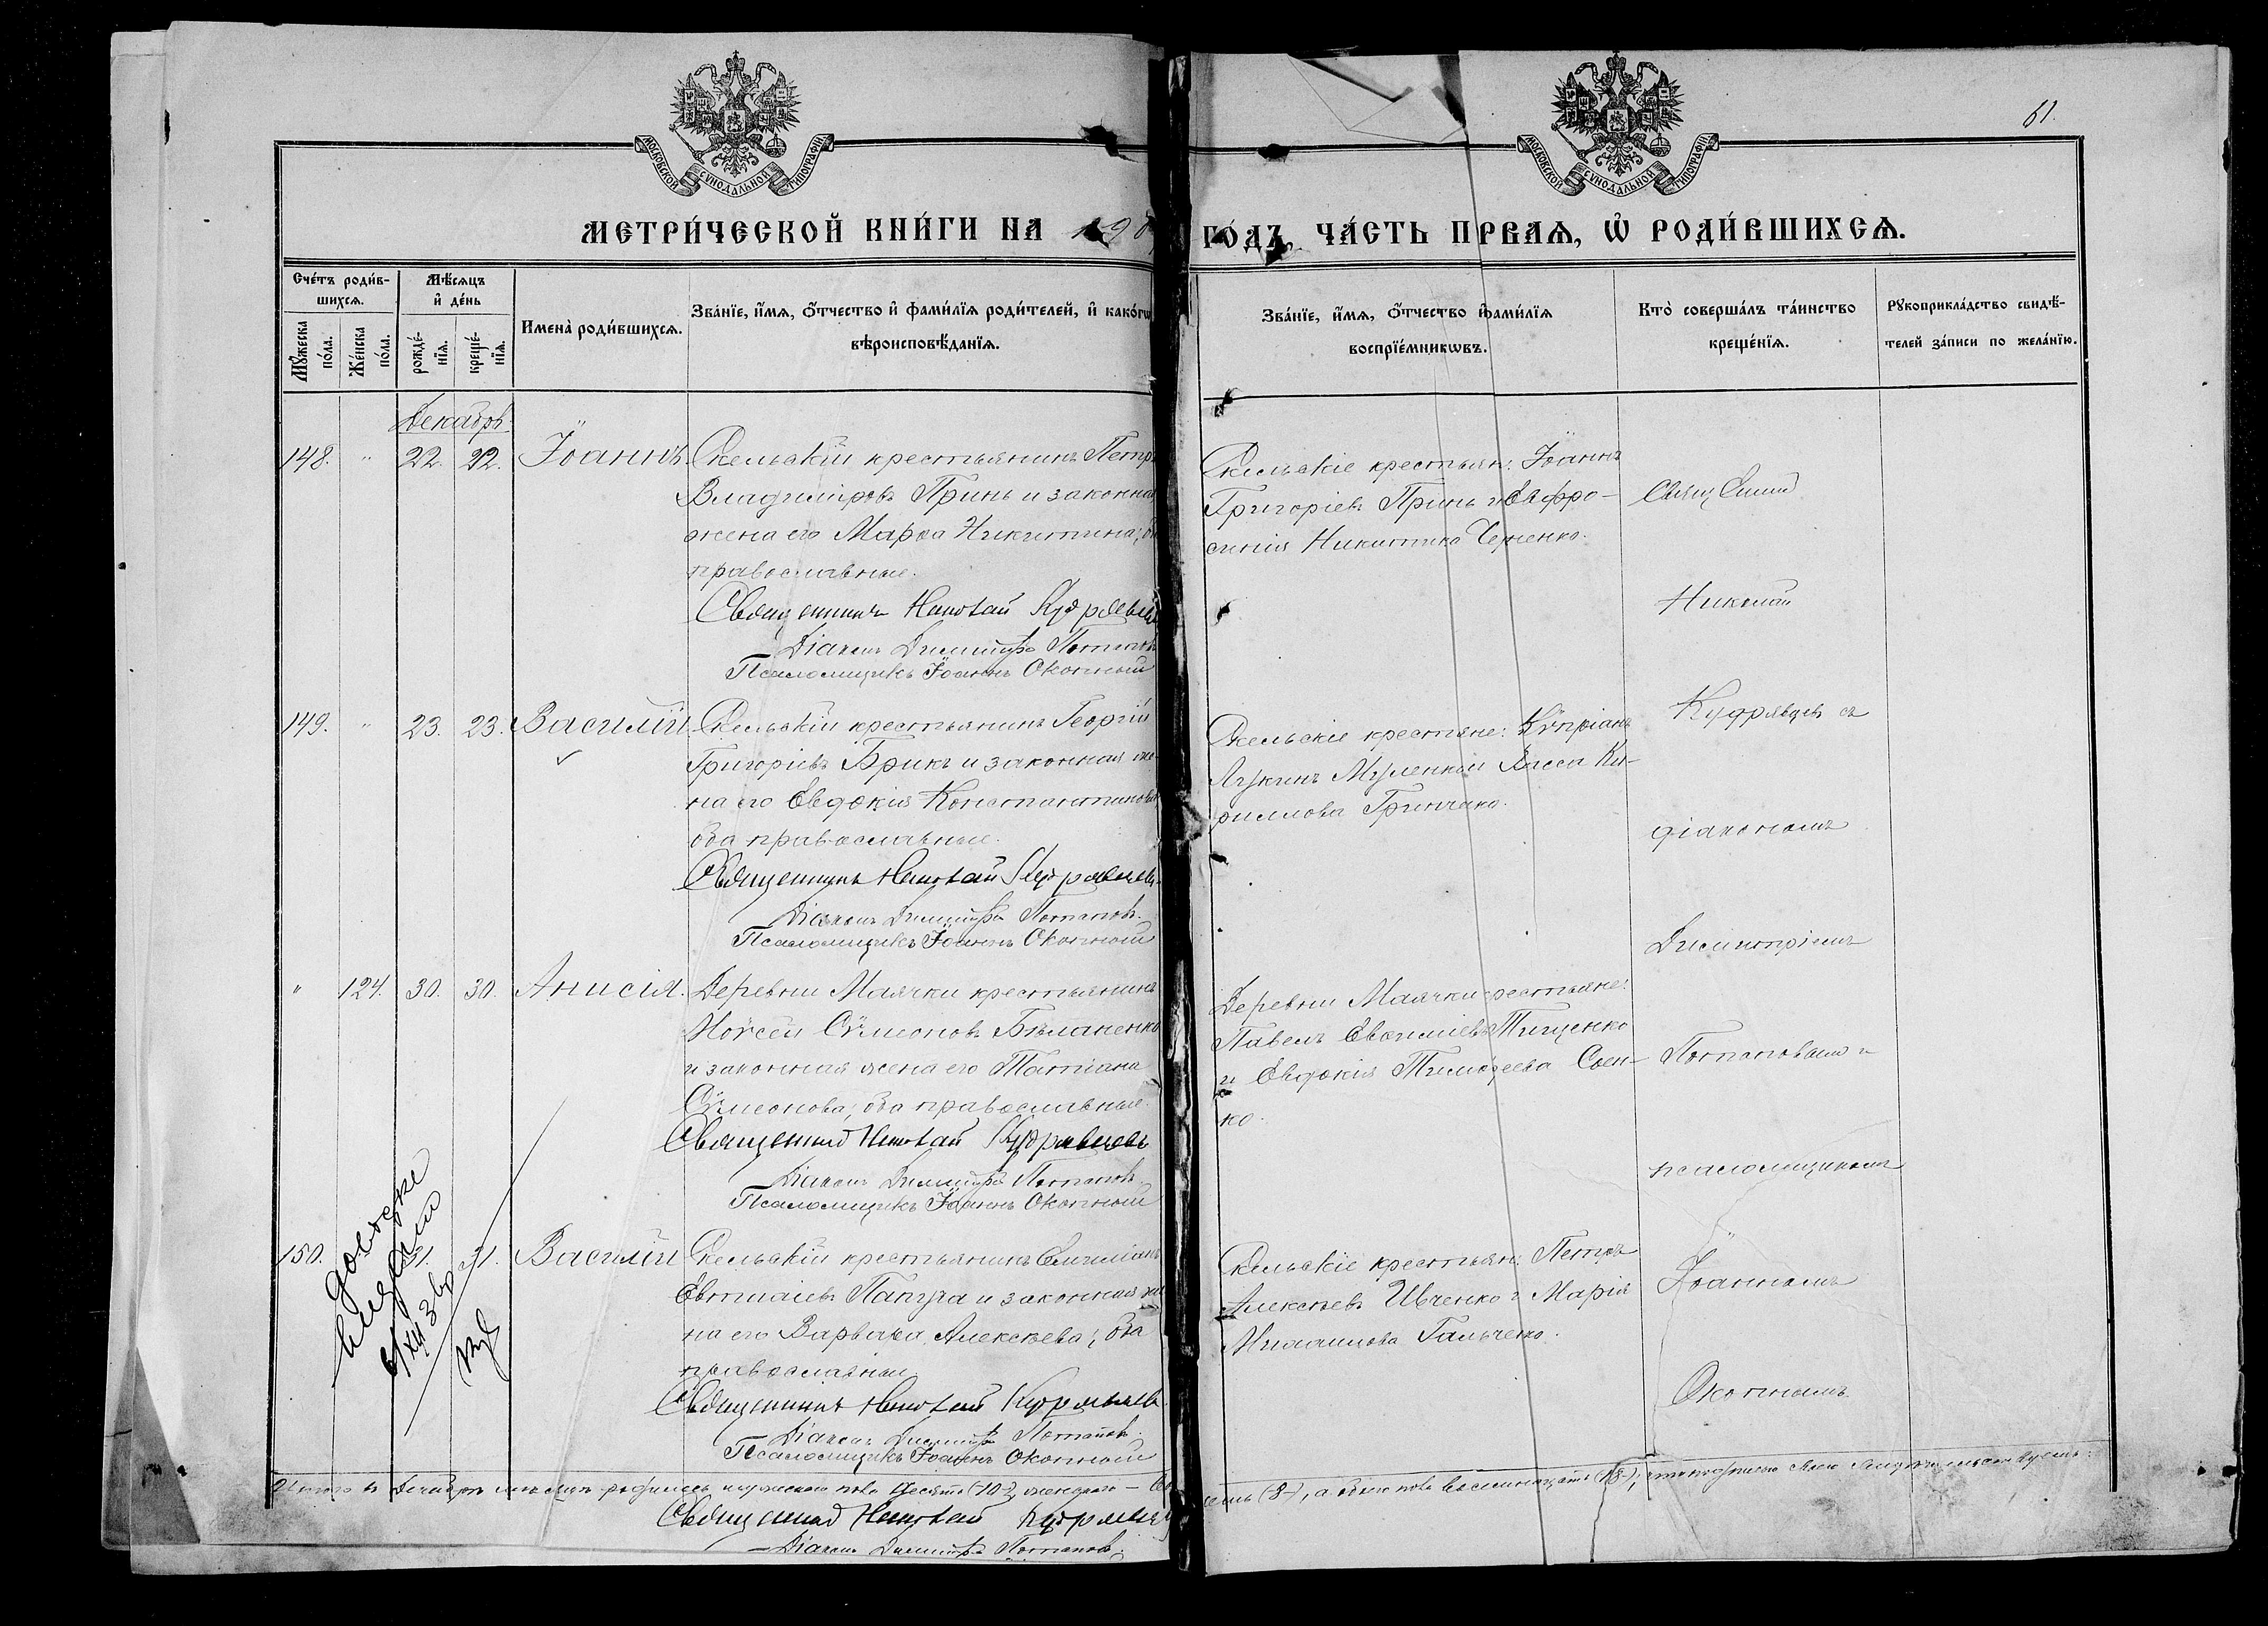 61.
МОСКОВСКОЙ СУНОДАЛЬНОЙ ТИПОГРАФІИ
МОСКОВСКОЙ СУНОДАЛЬНОЙ ТИПОГРАФІИ
МЕТРИ́ЧЕСКОЙ КНИ́ГИ НА 190
ГО́ДЪ, ЧА́СТЬ ПРВАѦ, Ѡ РОДИ́ВШИХСѦ.
Сче́тъ роди́в-
шихсѧ.
Мꙋжеска
по́ла.
Же́нска
по́ла.
Мѣ́сѧцъ
и де́нь
рожде́-
нїѧ.
креще́-
нїѧ.
Имена̀ роди́вшихсѧ.
Зва́нїе, и́мѧ, о́тчество и фами́лїѧ роди́телей, и како́гѡ
вѣроисповѣ́данїѧ.
Зва́нїе, и́мѧ, о́тчество и фами́лїѧ
воспрїе́мникѡвъ.
Кто̀ соверша́лъ та́инство
креще́нїѧ.
Рꙋкоприкла́дство свидѣ́-
телей за́писи по жела́нїю.
Декабрь
148. " 22. 22. Іоаннъ.
Скельскій крестьянинъ Петръ
Владиміровъ Принь и законна
жена его Марѳа Никитина;
православные.
Священникъ Николай Кудрявцевъ
Діаконъ Димитрій Потаповъ
Псаломщикъ Іоаннъ Окопный
Скельскіе крестьян: Іоаннъ
Григоріевъ Принь и Евфро-
синія Никитина Черненко.
149. " 23. 23. Василій
Скельскій крестьянинъ Георгій
Григорьевъ Брикъ и законная же-
на его Евдокія Константинова
оба православные.
Священникъ Николай Кудрявцевъ
Діаконъ Димитрій Потаповъ.
Псаломщикъ Іоаннъ Окопный
Скельскіе крестьяне: Кѵпріанъ
Лукинъ Муленкой Васса Ки-
риллова Гринчако.
" 124. 30. 30. Анисія.
Деревни Маячки крестьянинъ
Моѵсей Сѵмеоновъ Бѣланенко
и законная жена его Татіана
Сѵмеонова; оба православные.
Священникъ Николай Кудрявцевъ
Діаконъ Димитрій Потаповъ.
Псаломщикъ Іоаннъ Окопный
Деревни Маячки крестьяне:
Павелъ Евѳиміевъ Тищенко
и Евдокія Тимоѳеева Соен-
ко.
150. 31. 31. Василій
Скельскій крестьянинъ Емиліанъ
Евтихіевъ Папуча и законная же
на его Варвара Алексѣева; оба
православные
Священникъ Николай Кудрявцевъ
Діаконъ Димитрій Потаповъ.
Псаломщикъ Іоаннъ Окопный
Скельскіе крестьян: Петръ
Алексѣевъ Ивченко и Марія
Михаилова Гальченко.
Священникъ
Николай
Кудрявцевъ съ
діакономъ
Димитріемъ
Потаповымъ и
псаломщикомъ
Іоанномъ
Окопнымъ
Итого въ Декабрѣ мѣсяцѣ родилось мужескаго пола десять (10), женскаго – во
семь (8), а обоего пола восемнадцать (18);
Священникъ Николай Кудрявцевъ
Діаконъ Димитрій Потаповъ.